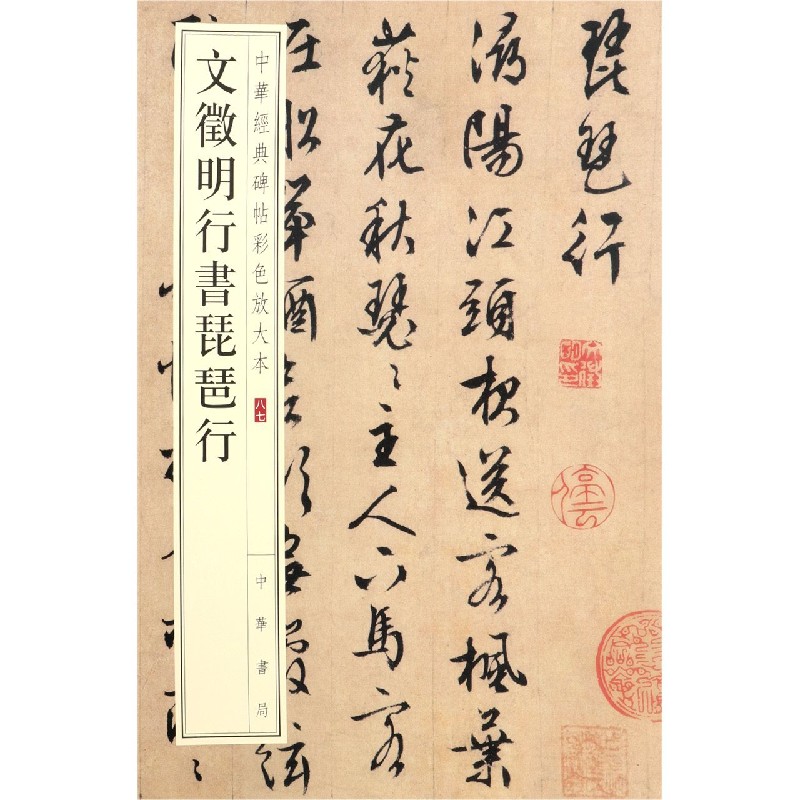 琵琶行
潯陽江頭夜送客楓葉
荻花秋瑟〻主人下馬客
在船舉酒欲飲無管絃
中華經典碑帖彩色放大本
八七
中華書局
文徵明行書琵琶行
停雲